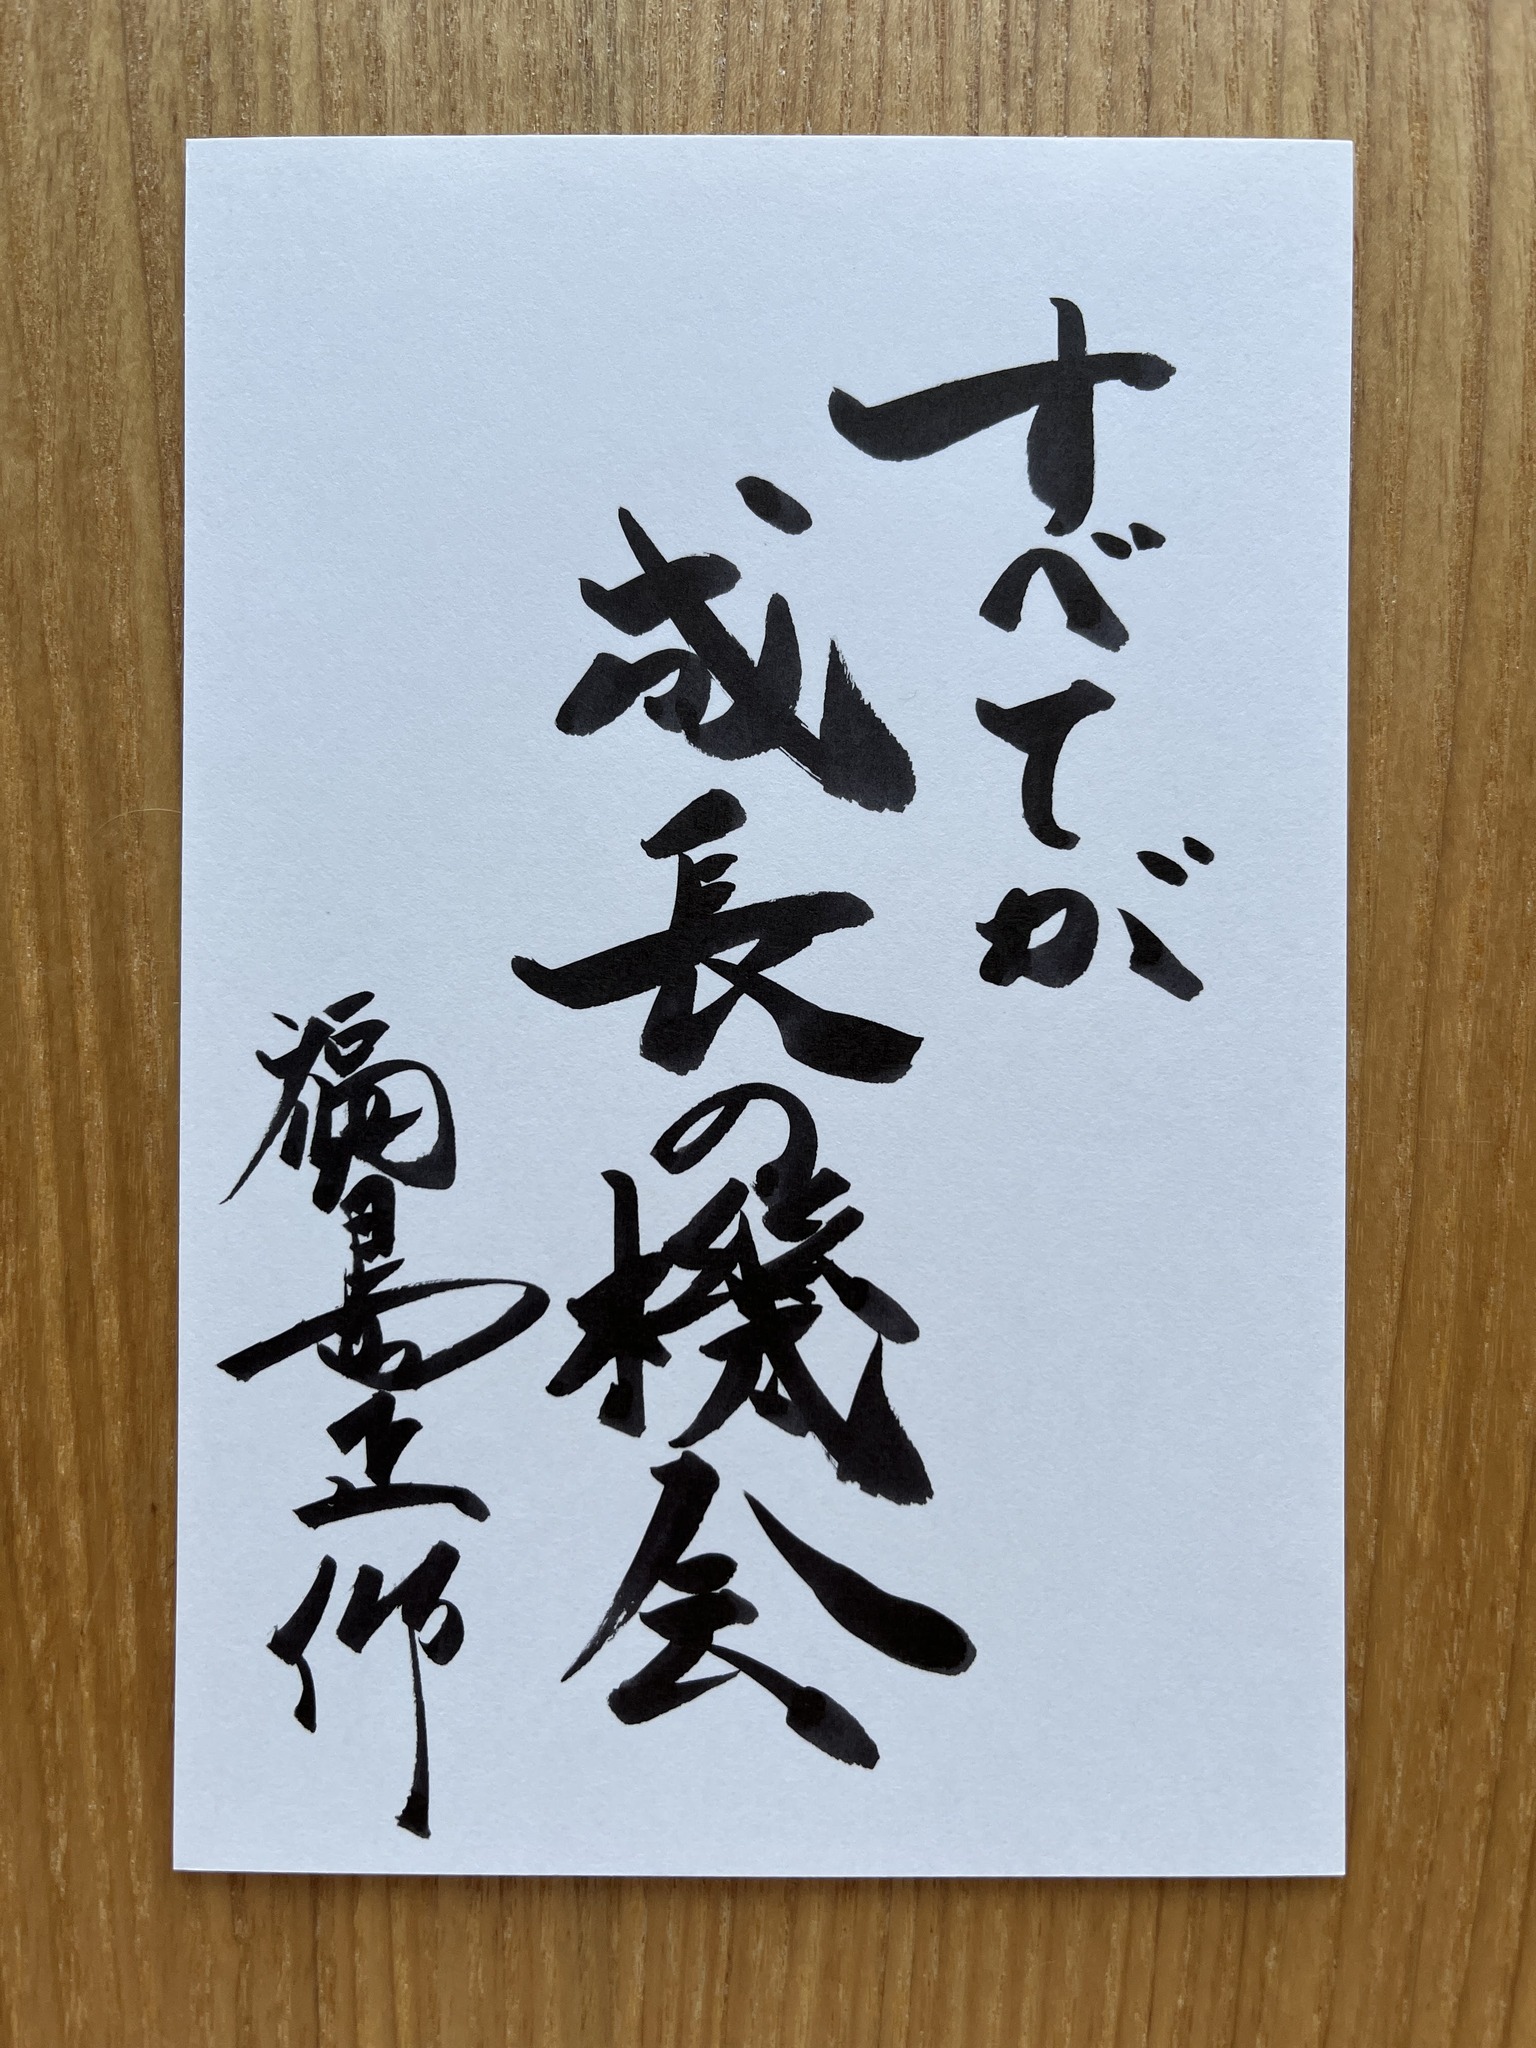 すべてが
成長の機会
福島正伸